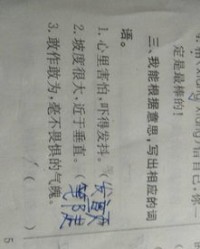 定是最棒的！
三、我能根据意思，写出相应的词
语。
1. 心里害怕，吓得发抖。（发颤
2. 坡度很大，近于垂直。（
3. 敢作敢为，毫不畏惧的气魄。
（
5